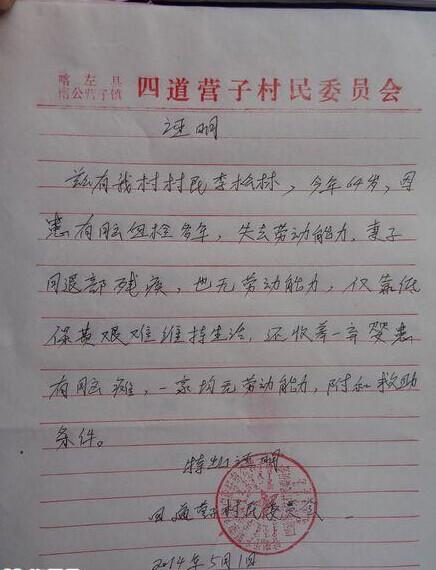 喀左县
南公营子镇
四道营子村民委员会
证明
兹有我村村民李松林，今年64岁，因
患有脑血栓多年，失去劳动能力，妻子
因退部残疾，也无劳动能力，仅靠低
保费艰难维持生活，还收养一弃婴患
有脑瘫，一家均无劳动能力，附和救助
条件。
特此证明
四道营子村民委员会
2014年5月1日